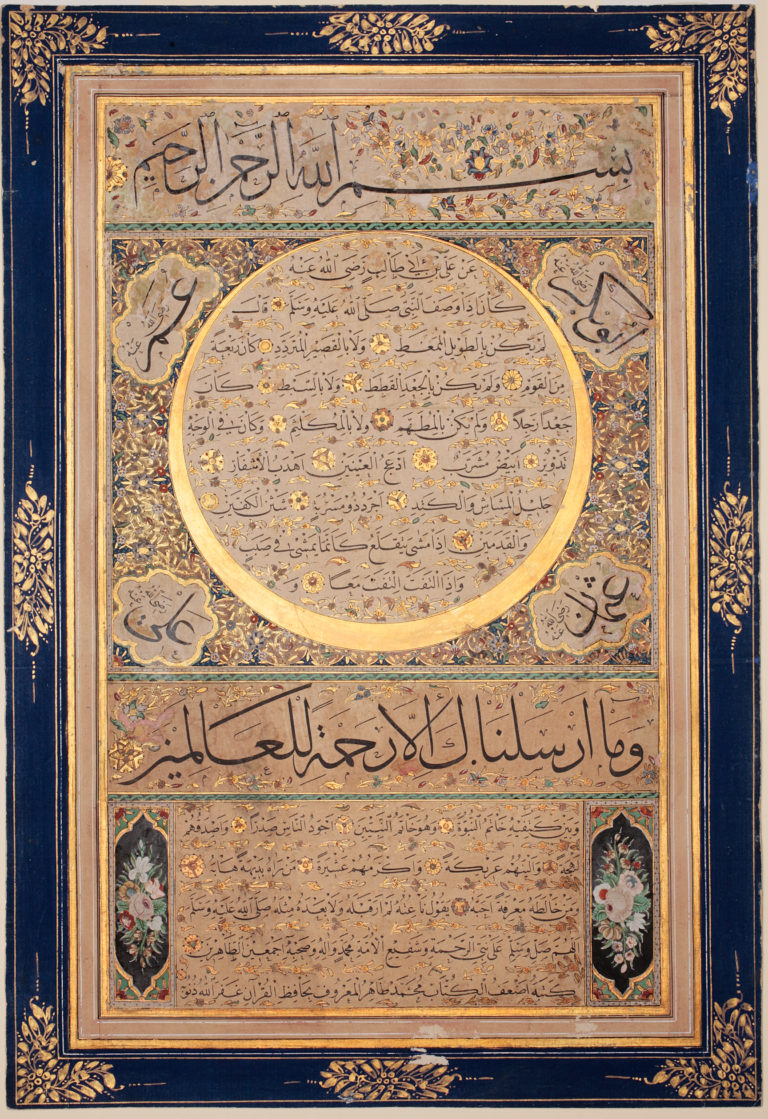 بسم الله الرحمن الرحيم
عن علي بن أبي طالب رضي الله عنه
كان إذا وصف النبي صلى الله عليه وسلم قال
لم يكن بالطويل الممغط ولا بالقصير المتردد كان ربعة
من القوم ولم يكن بالجعد القطط ولا بالسبط كان
جعدا رجلا ولم يكن بالمطهم ولا بالمكلثم وكان في الوجه
تدوير أبيض مشرب أدعج العينين أهدب الأشفار
جليل المشاش والكتد أجرد ذو مسربة شثن الكفين
والقدمين إذا مشى يتقلع كأنما يمشي في صبب
وإذا التفت التفت معا
أبو بكر رضي الله عنه
عمر رضي الله عنه
عثمان رضي الله عنه
علي رضي الله عنه
وما أرسلناك إلا رحمة للعالمين
وبين كتفيه خاتم النبوة وهو خاتم النبيين أجود الناس صدرا وأصدقهم
لهجة وألينهم عريكة وأكرمهم عشيرة من رآه بديهة هابه
من خالطه معرفة أحبه يقول ناعته لم أر قبله ولا بعده مثله صلى الله عليه وسلم
اللهم صل وسلم على نبي الرحمة وشفيع الأمة محمد وآله وصحبه أجمعين الطاهرين
كتبه أضعف الكتاب محمد طاهر المعروف بحافظ القرآن غفر الله ذنوبه